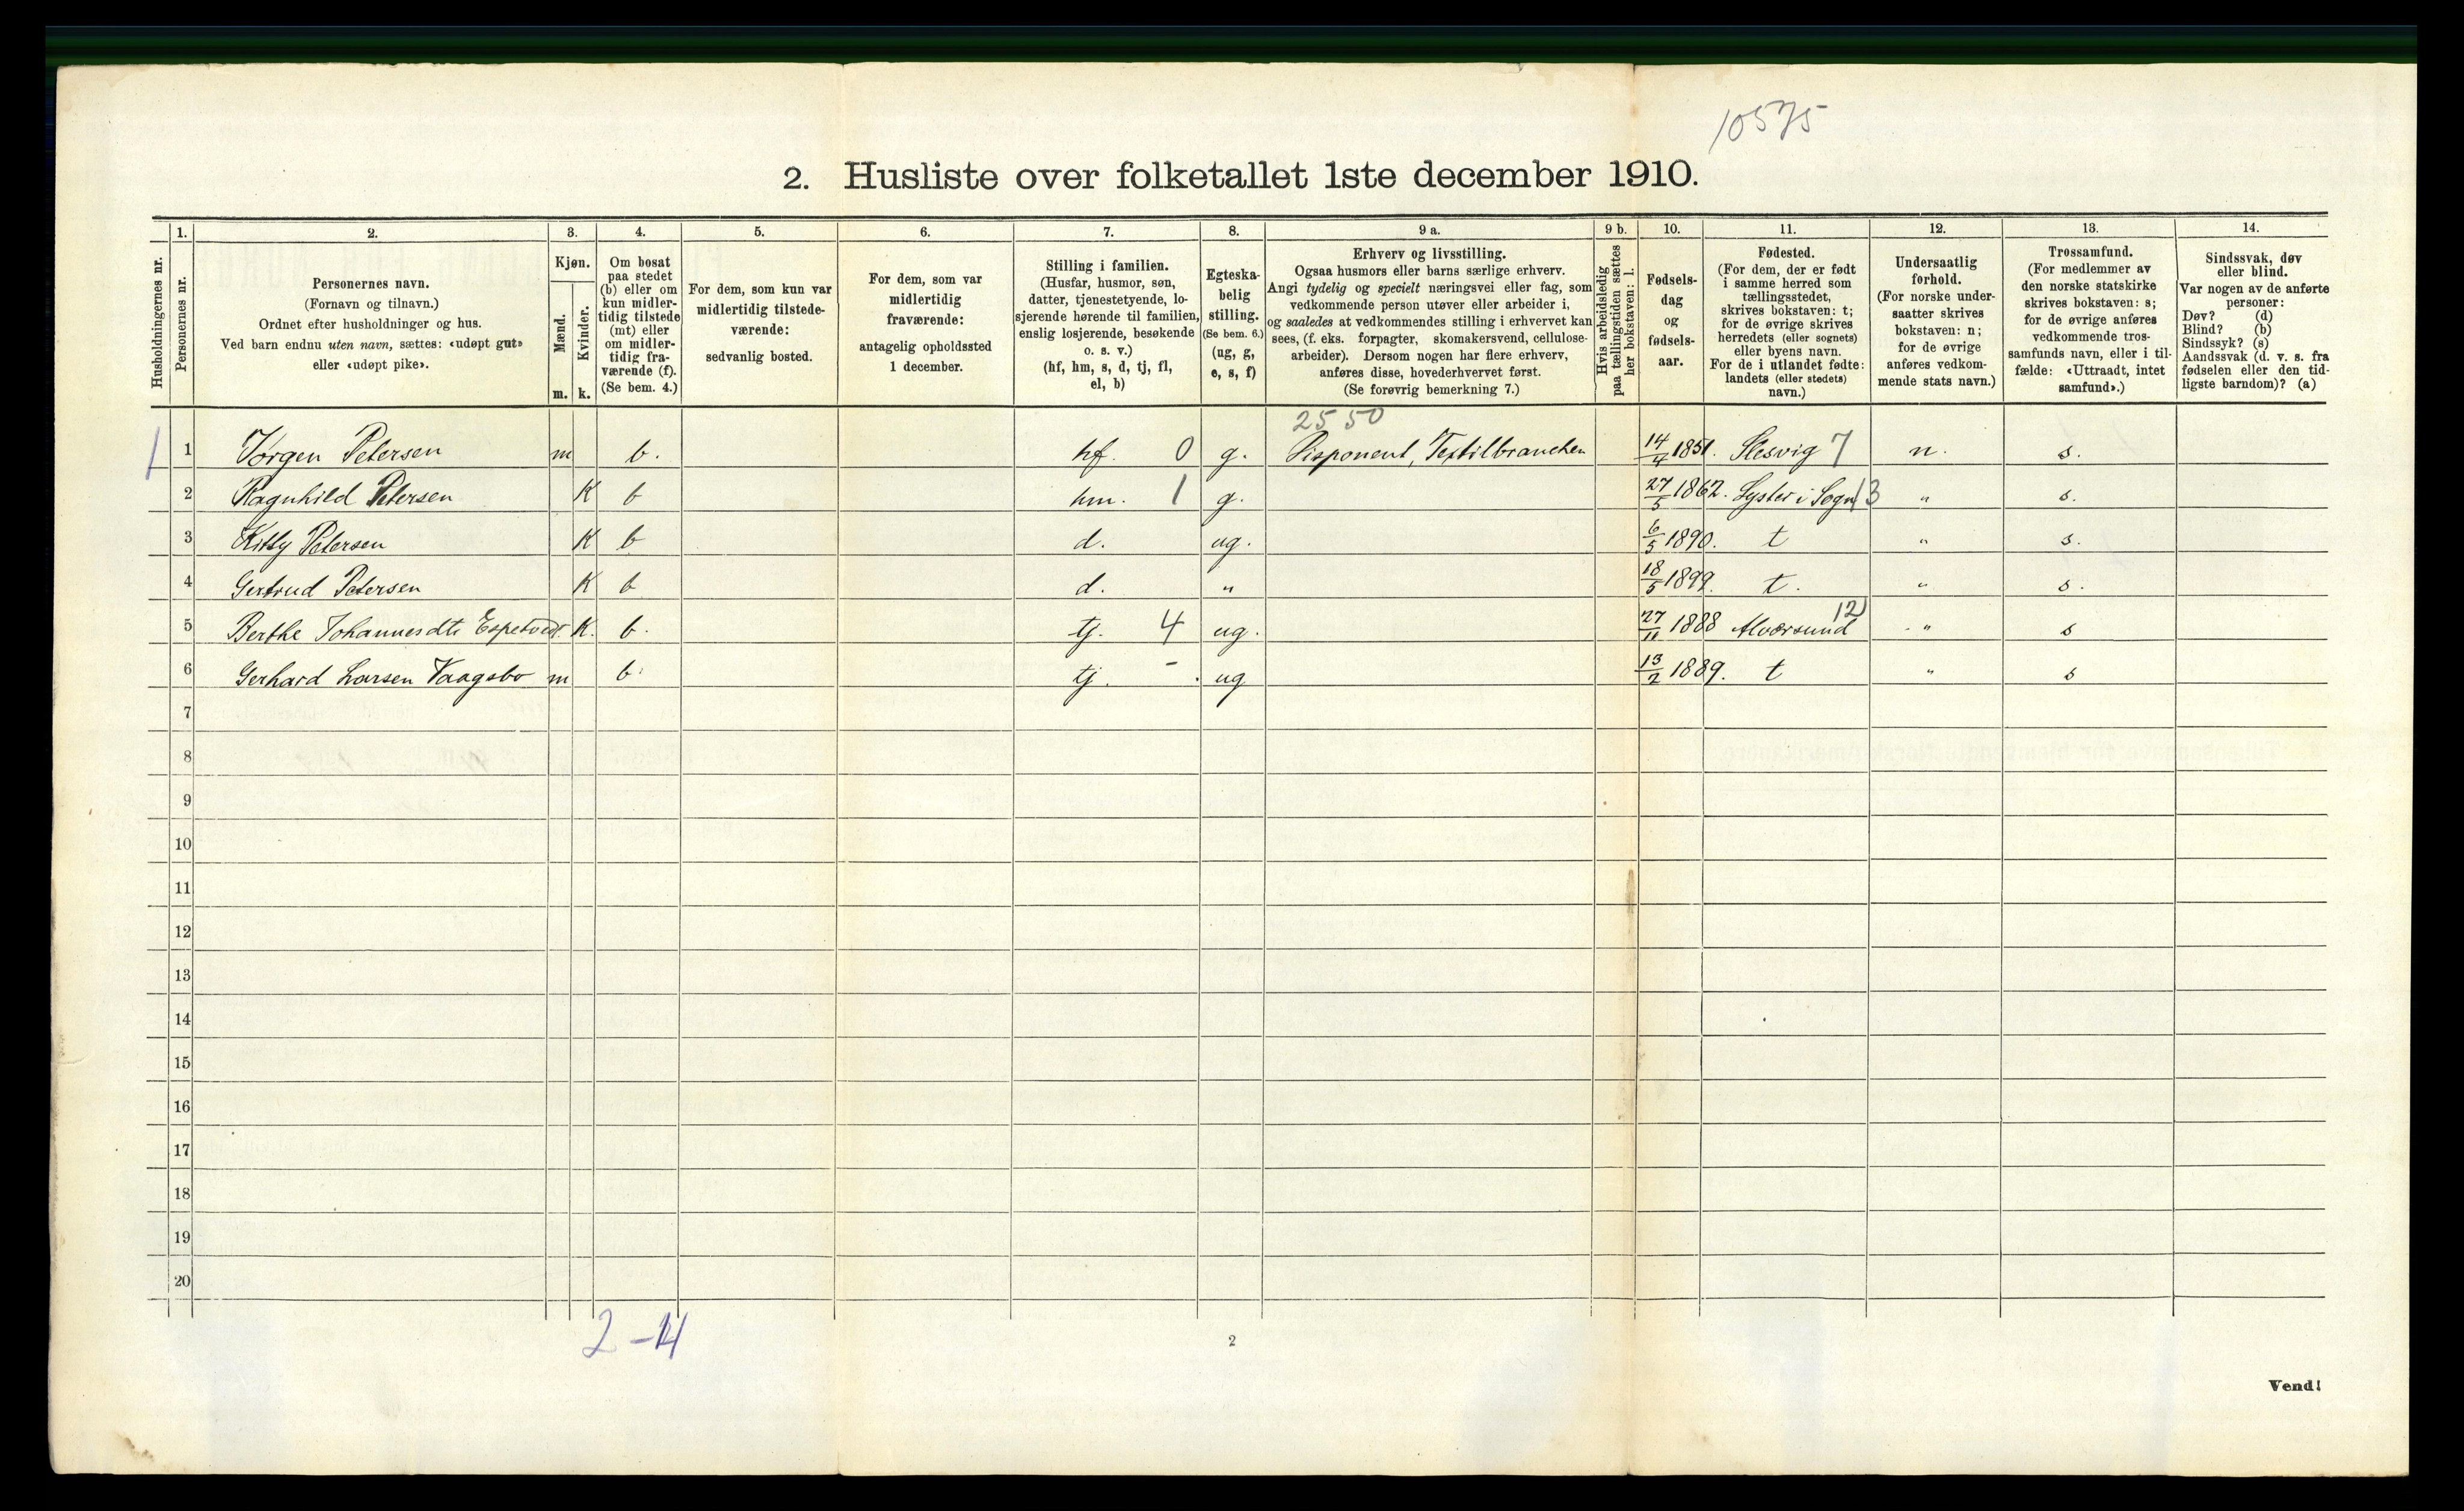 10575
2. Husliste over folketallet 1ste december 1910.
Husholdningernes nr.
1.
Personernes nr.
2.
Personernes navn.
(Fornavn og tilnavn.)
Ordnet efter husholdninger og hus.
Ved barn endnu uten navn, sættes: «udøpt gut»
eller «udøpt pike».
3.
Kjøn.
Mænd.
Kvinder.
m. k.
4.
Om bosat
paa stedet
(b) eller om
kun midler-
tidig tilstede
(mt) eller
om midler-
tidig fra-
værende (f).
(Se bem. 4.)
5.
For dem, som kun var
midlertidig tilstede-
værende:
sedvanlig bosted.
6.
For dem, som var
midlertidig
fraværende:
antagelig opholdssted
1 december.
7.
Stilling i familien.
(Husfar, husmor, søn,
datter, tjenestetyende, lo-
sjerende hørende til familien,
enslig losjerende, besøkende
o. s. v.)
(hf, hm, s, d, tj, fl,
el, b)
8.
Egteska-
belig
stilling.
(Se bem. 6.)
(ug, g,
e, s, f)
9 a.
Erhverv og livsstilling.
Ogsaa husmors eller barns særlige erhverv.
Angi tydelig og specielt næringsvei eller fag, som
vedkommende person utøver eller arbeider i,
og saaledes at vedkommendes stilling i erhvervet kan
sees, (f. eks. forpagter, skomakersvend, cellulose-
arbeider). Dersom nogen har flere erhverv,
anføres disse, hovederhvervet først.
(Se forøvrig bemerkning 7.)
9 b.
Hvis arbeidsledig
paa tællingstiden sættes
her bokstaven: l.
10.
Fødsels-
dag
og
fødsels-
aar.
11.
Fødested.
(For dem, der er født
i samme herred som
tællingsstedet,
skrives bokstaven: t;
for de øvrige skrives
herredets (eller sognets)
eller byens navn.
For de i utlandet fødte:
landets (eller stedets)
navn.)
12.
Undersaatlig
forhold.
(For norske under-
saatter skrives
bokstaven: n;
for de øvrige
anføres vedkom-
mende stats navn.)
13.
Trossamfund.
(For medlemmer av
den norske statskirke
skrives bokstaven: s;
for de øvrige anføres
vedkommende tros-
samfunds navn, eller i til-
fælde: «Uttraadt, intet
samfund».)
14.
Sindssvak, døv
eller blind.
Var nogen av de anførte
personer:
Døv? (d)
Blind? (b)
Sindssyk? (s)
Aandssvak (d. v. s. fra
fødselen eller den tid-
ligste barndom)? (a)
2550
1 1 Jørgen Petersen m b. hf. 0 g. Disponent, Textilbranchen 14/4 1851. Slesvig 7 n. s.
2 Ragnhild Petersen K b hm. 1 g. 27/5 1862. Lyster i Sogn 13 " s.
3 Kitty Petersen K b d. ug. 6/5 1890. t " s.
4 Gertrud Petersen K b d. " 18/5 1899. t. " s.
12
5 Berthe Johannesdtr Espetvedt. K. b. tj. 4 ug. 27/11 1888 Alversund " s
6 Gerhard Larsen Vaagsbo m b. tj. - ug 13/2 1889. t " s
7
8
9
10
11
12
13
14
15
16
17
18
19
20
2-4
2
Vend!